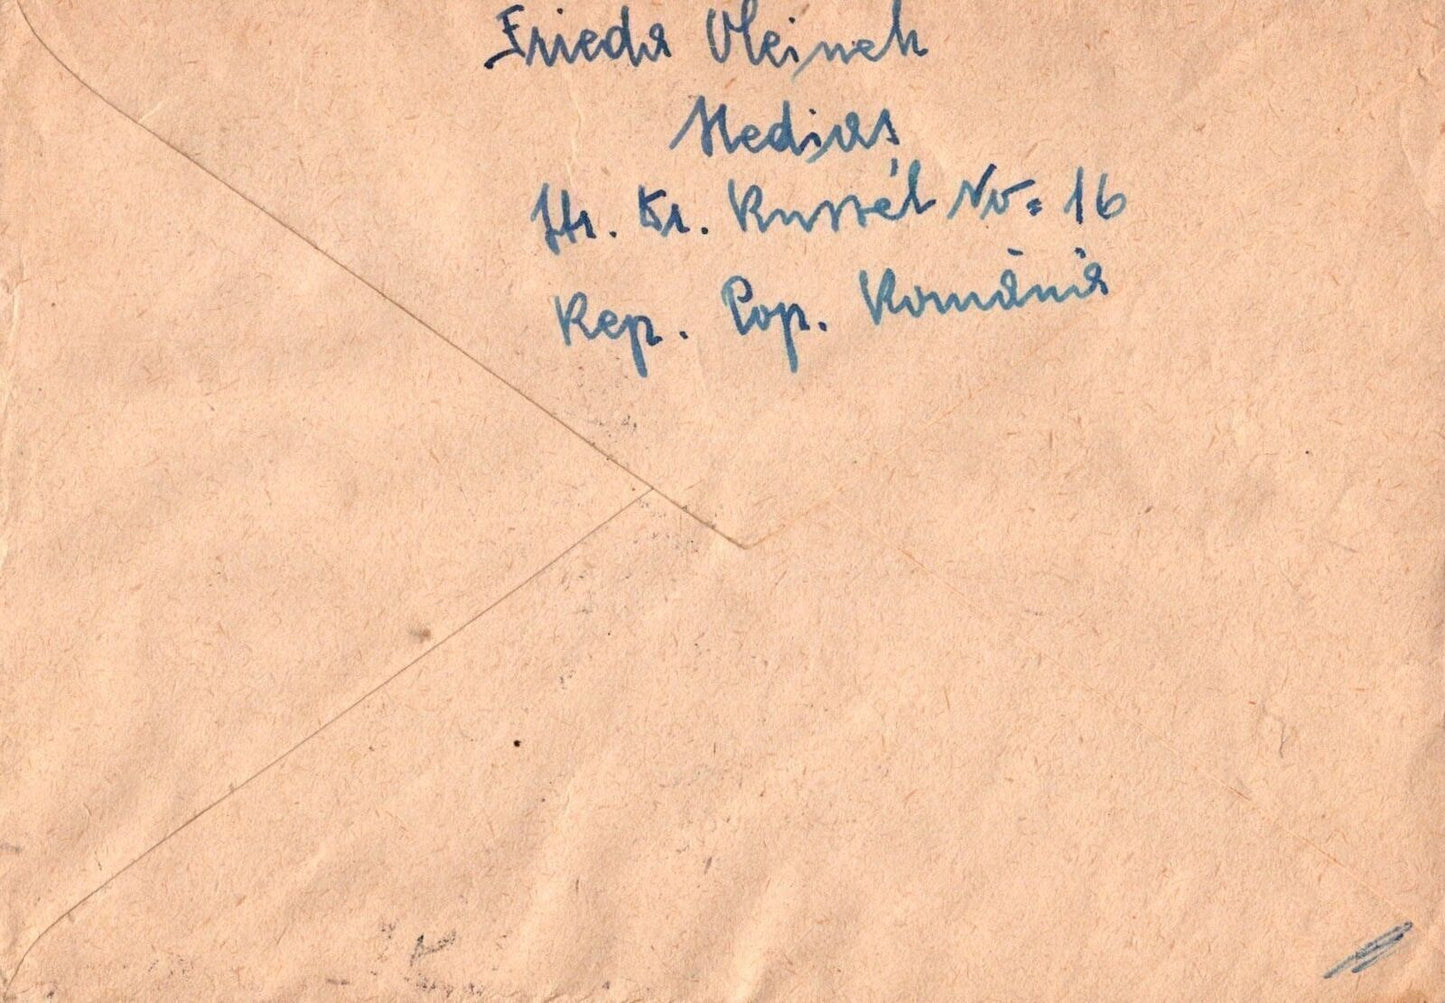 Frieda Oleinek
Medias
Str. Kr. No. 16
Rep. Pop. Română